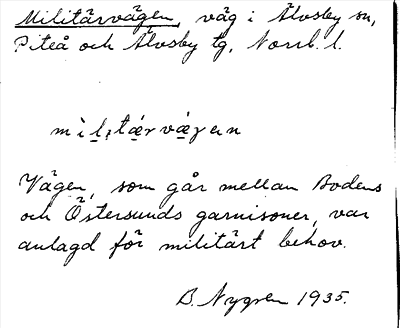 Militärvägen, väg i Älvsby sn,
Piteå och Älvsby tg, Norrb. l.
militærvægen
Vägen, som går mellan Bodens
och Östersunds garnisoner, var
anlagd för militärt behov.
B. Nygren 1935.